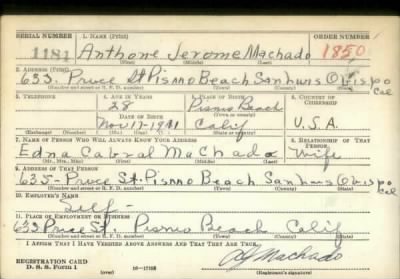 SERIAL NUMBER 1. NAME (Print) ORDER NUMBER
1181 Anthone Jerome Machado 1850
(First) (Middle) (Last)
2. ADDRESS (Print)
633. Price St Pismo Beach San Luis Obispo Cal
(Number and street or R. F. D. number) (Town) (County) (State)
3. TELEPHONE 4. AGE IN YEARS 5. PLACE OF BIRTH 6. COUNTRY OF CITIZENSHIP
28 Pismo Beach
DATE OF BIRTH (Town or county)
Nov 17-1911 Calif U.S.A.
(Exchange) (Number) (Mo.) (Day) (Yr.) (State or country)
7. NAME OF PERSON WHO WILL ALWAYS KNOW YOUR ADDRESS 8. RELATIONSHIP OF THAT PERSON
Edna Cabral Machado Wife
(Mr., Mrs., Miss) (First) (Middle) (Last)
9. ADDRESS OF THAT PERSON
635- Price St. Pismo Beach San Luis Obispo Cal
(Number and street or R. F. D. number) (Town) (County) (State)
10. EMPLOYER'S NAME
Self-
11. PLACE OF EMPLOYMENT OR BUSINESS
633 Price St. Pismo Beach Calif
(Number and street or R. F. D. number) (Town) (County) (State)
I AFFIRM THAT I HAVE VERIFIED ABOVE ANSWERS AND THAT THEY ARE TRUE.
REGISTRATION CARD
D. S. S. FORM 1
(over) 16-17105
Machado
(Registrant's signature)